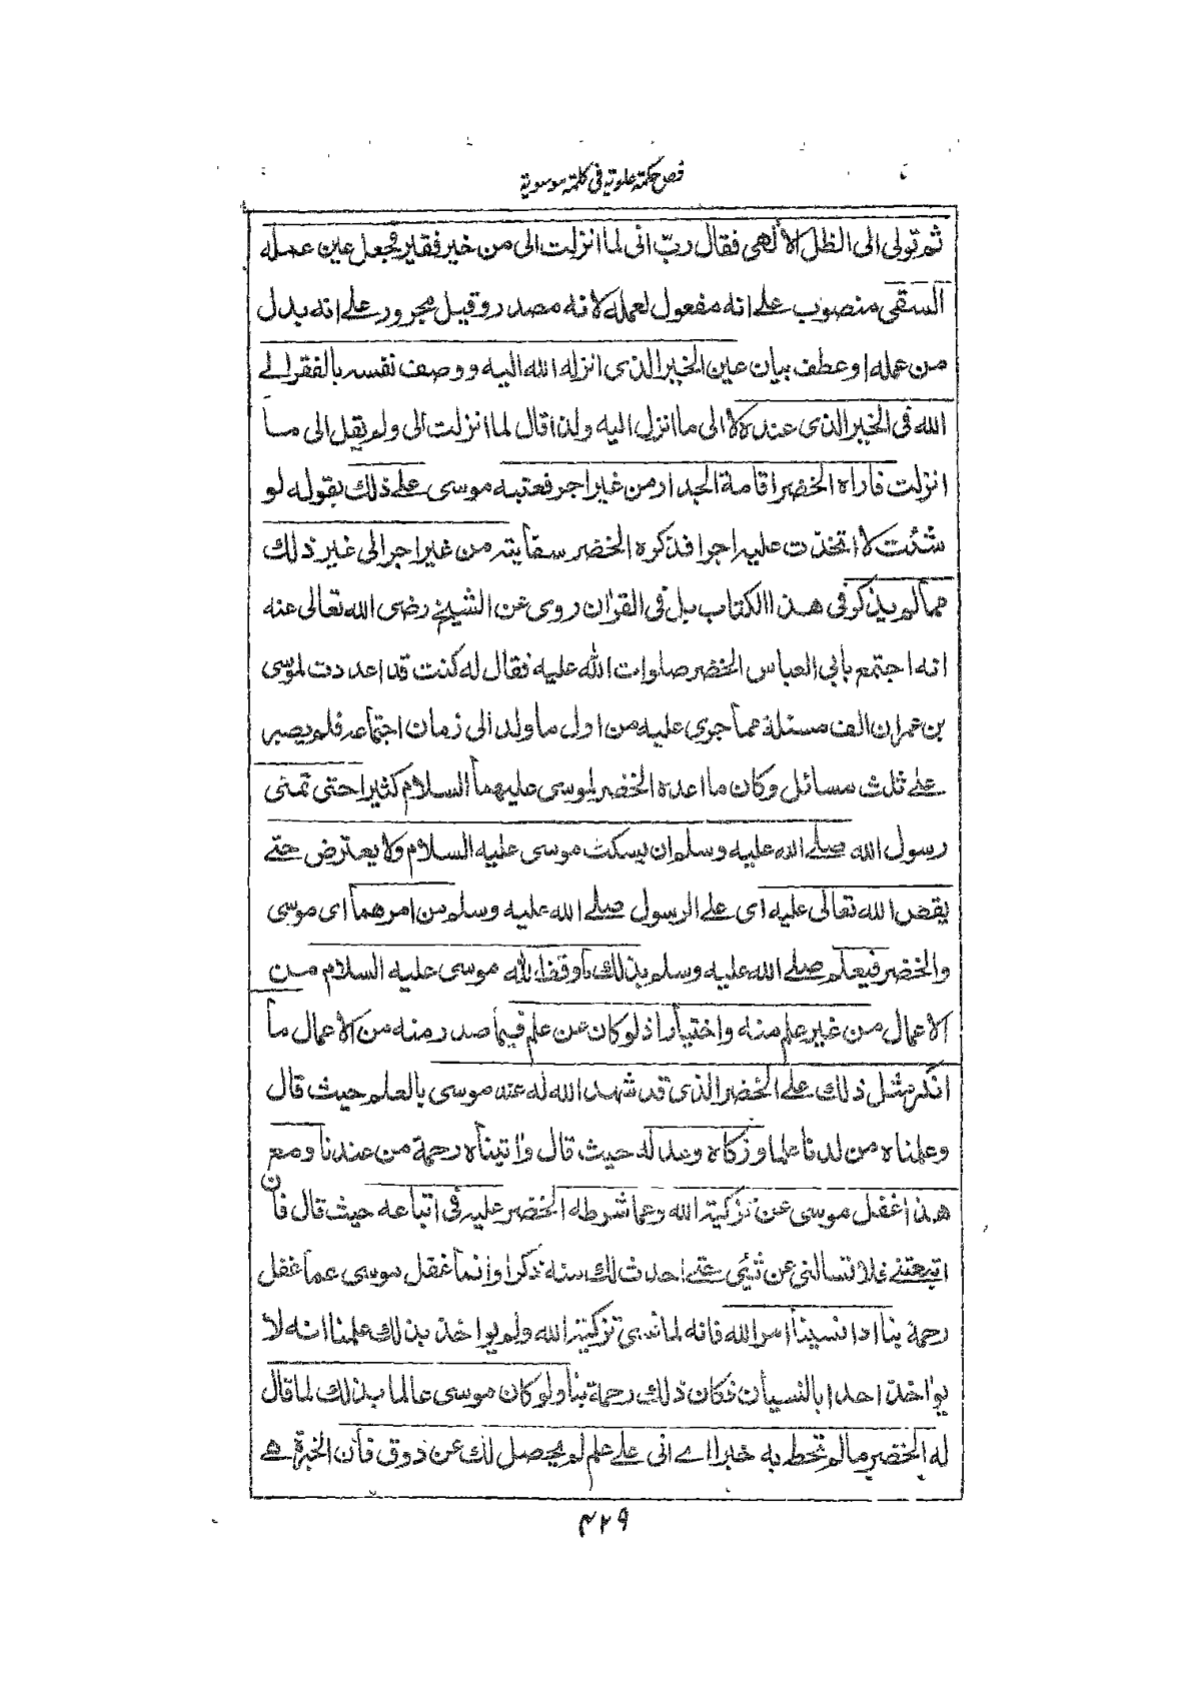 فص حكمة علوية فى كلمة موسوية
ثم تولى الى الظل الالهى فقال رب انى لما انزلت الى من خير فقير فجعل عين عمله
السقى منصوب على انه مفعول لعمله لانه مصدر وقيل مجرور على انه بدل
من عمله او عطف بيان عين الخير الذى انزله الله اليه ووصف نفسه بالفقر الى
الله فى الخير الذى عنده لا الى ما انزل اليه ولذا قال لما انزلت الى ولم يقل الى ما
انزلت فاراه الخضر اقامة الجدار من غير اجر فعتبه موسى على ذلك بقوله لو
شئت لاتخذت عليه اجرا فذكره الخضر سقايته من غير اجر الى غير ذلك
مما لم يذكر فى هذا الكتاب بل فى القرٰان روى عن الشيخ رضى الله تعالى عنه
انه اجتمع بابى العباس الخضر صلوات الله عليه فقال له كنت قد اعددت لموسى
بن عمران الف مسئلة مما جرى عليه من اول ما ولد الى زمان اجتماعه فلم يصبر
على ثلث مسائل وكان ما اعده الخضر لموسى عليهما السلام كثيرا حتى تمنى
رسول الله صلى الله عليه وسلم ان يسكت موسى عليه السلام ولا يعترض حتى
يقص الله تعالى عليه اى على الرسول صلى الله عليه وسلم من امرهما اى موسى
والخضر فيعلم صلى الله عليه وسلم بذلك ما وفق الله موسى عليه السلام من
الاعمال من غير علم منه واختيار اذ لو كان عن علم فيما صدر منه من الاعمال ما
انكر مثل ذلك على الخضر الذى قد شهد الله له عند موسى بالعلم حيث قال
وعلمناه من لدنا علما وزكاه وعدله حيث قال واٰتيناه رحمة من عندنا ومع
هذا غفل موسى عن تزكية الله وعما شرطه الخضر عليه فى اتباعه حيث قال فان
اتبعتنى فلا تسالنى عن شئ حتى احدث لك منه ذكرا وانما غفل موسى عما غفل
رحمة بنا اذا نسينا امر الله فانه لما نسى تزكية الله ولم يواخذ بذلك علمنا انه لا
يواخذ احدا بالنسيان فكان ذلك رحمة بنا ولو كان موسى عالما بذلك لما قال
له الخضر مالم تحط به خبرا اے انى على علم لم يحصل لك عن ذوق فان الخبرة هے
۴۲۹